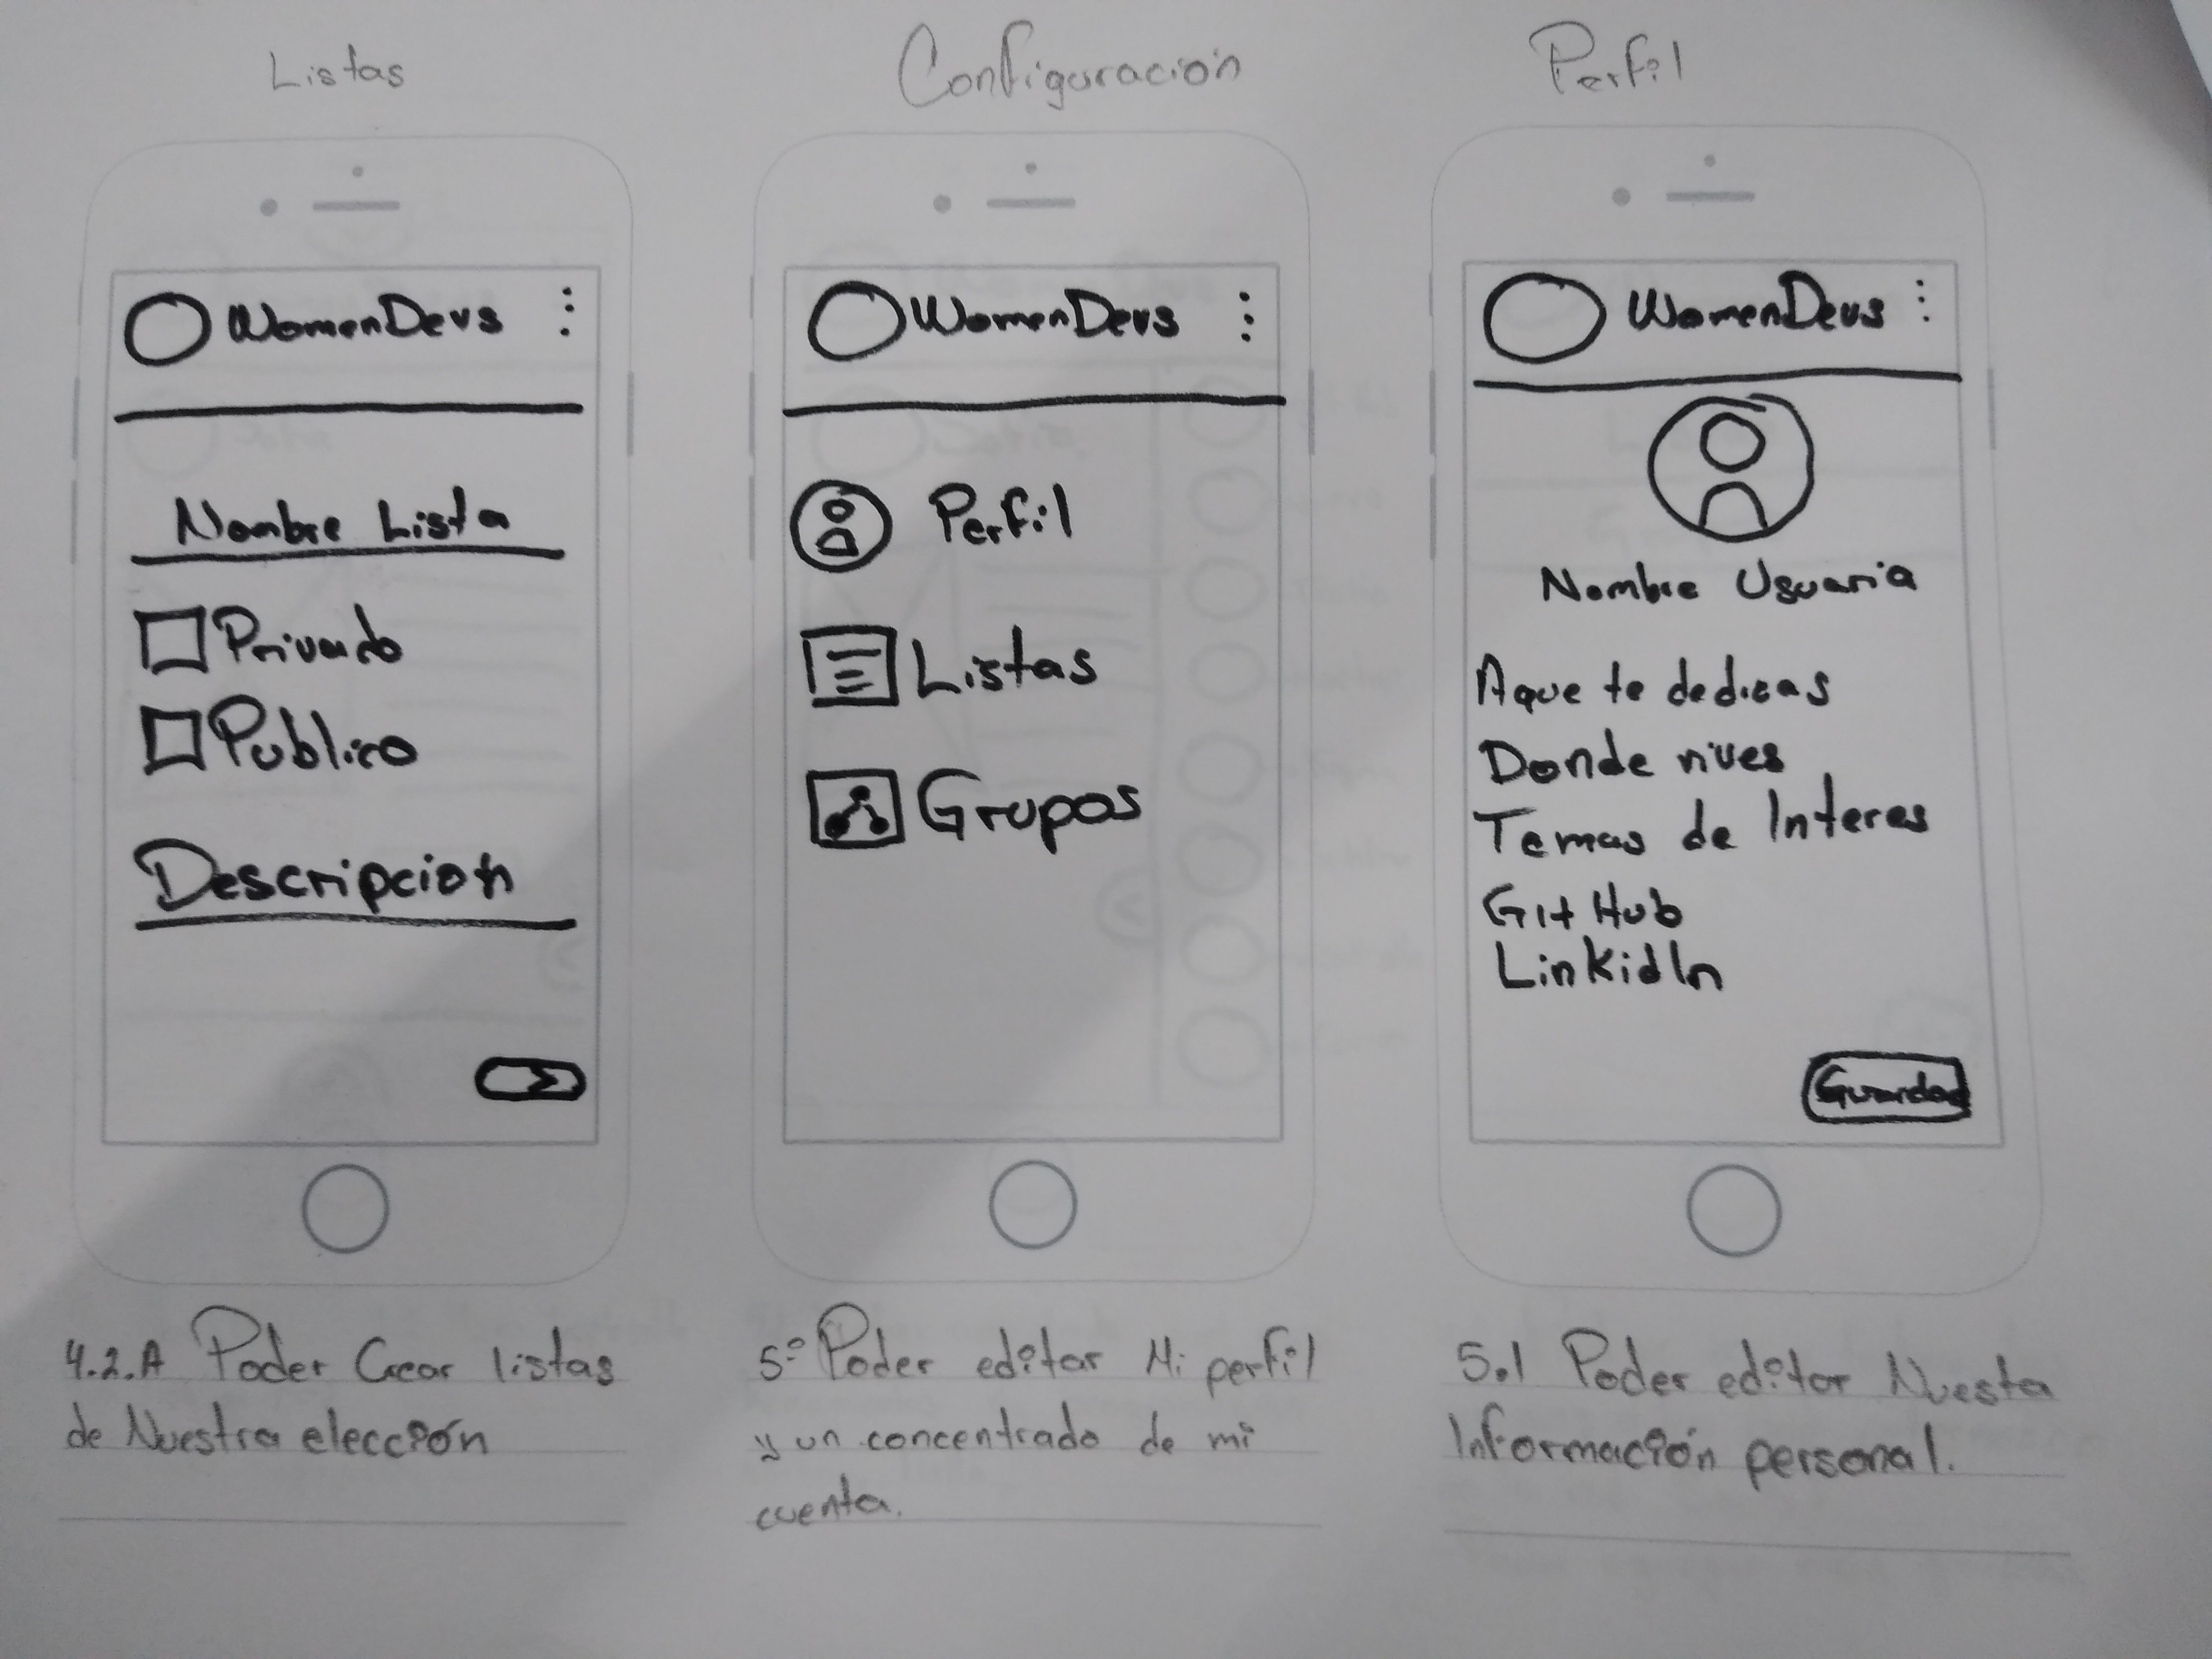 Listas
WomenDevs
Nombre Lista
Privado
Publico
Descripcion
4.2.A Poder Crear listas
de Nuestra elección
Configuración
WomenDevs
Perfil
Listas
Grupos
5º Poder editar Mi perfil
y un concentrado de mi
cuenta.
Perfil
WomenDevs
Nombre Usuaria
Aque te dedicas
Donde vives
Temas de Interes
GitHub
LinkidIn
Guardar
5.1 Poder editar Nuesta
Información personal.